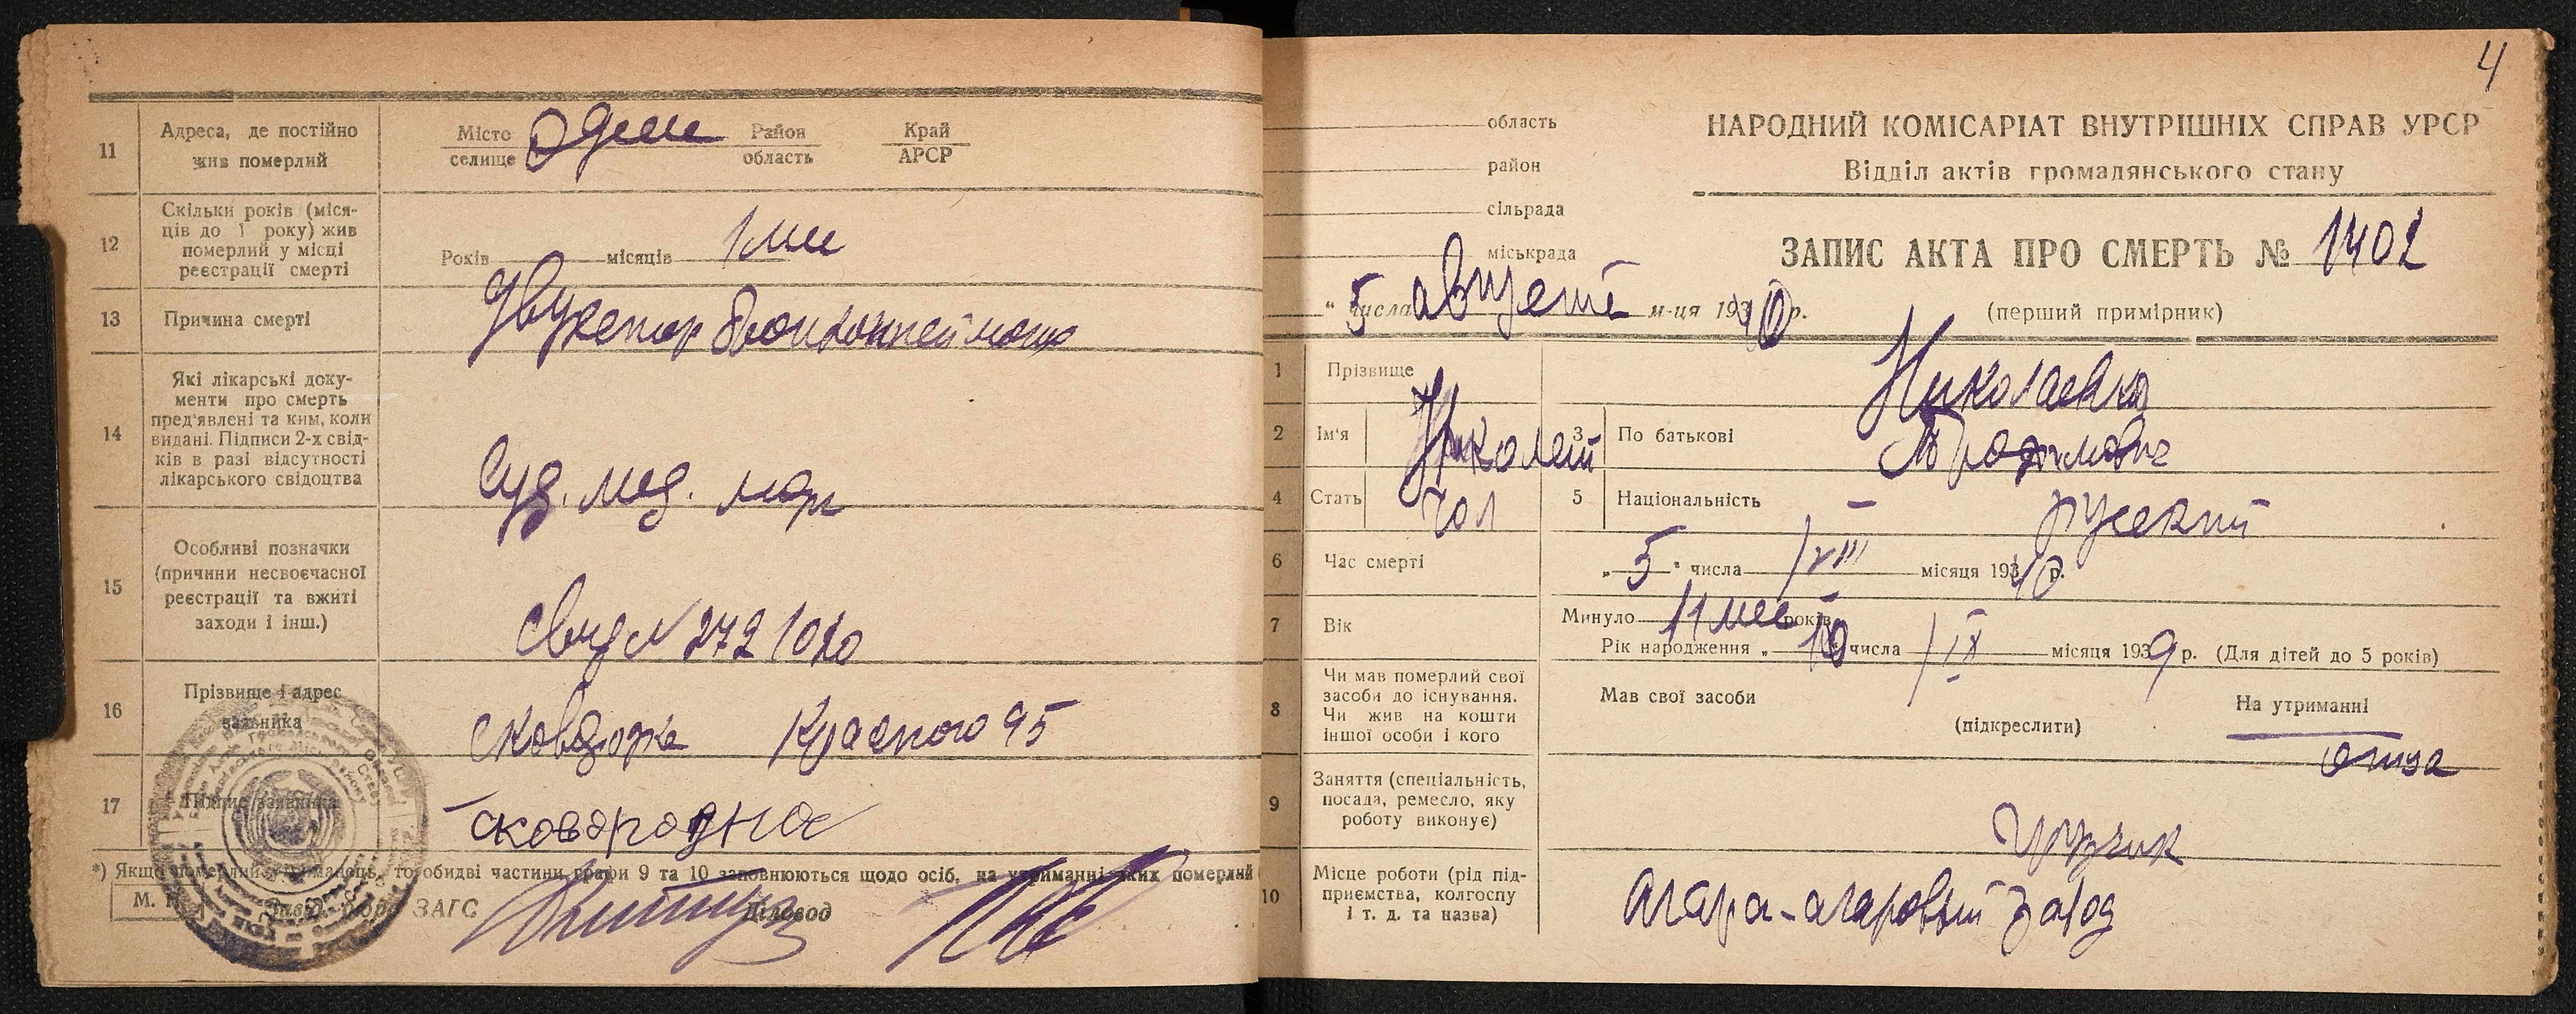 11
Адреса, де постійно
жив померлий
Місто
селище
Одеса
Район
область
Край
АРСР
12
Скільки років (міся-
ців до 1 року) жив
померлий у місці
реєстрації смерті
Років місяців
13
Причина смерті
14
Які лікарські доку-
менти про смерть
пред'явлені та ким, коли
видані. Підписи 2-х свід-
ків в разі відсутності
лікарського свідоцтва
Суд. мед. морг
15
Особливі позначки
(причини несвоєчасної
реєстрації та вжиті
заходи і інш.)
16
Прізвище і адрес
заявника
95
17
Підпис заявника
*) Якщо померлий утриманець, то обидві частини графи 9 та 10 заповнюються щодо осіб, на утриманні яких померлий
М. П.
Завід. бюро ЗАГС
Діловод
4
область
район
сільрада
міськрада
НАРОДНИЙ КОМІСАРІАТ ВНУТРІШНІХ СПРАВ УРСР
Відділ актів громадянського стану
ЗАПИС АКТА ПРО СМЕРТЬ № 1402
" 5 числа августа м-ця 1940 р.
(перший примірник)
1
Прізвище
2
Ім'я
Николай
3
По батькові
4
Стать
чол
5
Національність
русский
6
Час смерті
„ 5 " числа VIII місяця 1940 р.
7
Вік
Минуло 11 мес років
Рік народження „ 10 числа IX місяця 1939 р. (Для дітей до 5 років)
8
Чи мав померлий свої
засоби до існування.
Чи жив на кошти
іншої особи і кого
Мав свої засоби
(підкреслити)
На утриманні
отца
9
Заняття (спеціальність,
посада, ремесло, яку
роботу виконує)
грузчик
10
Місце роботи (рід під-
приємства, колгоспу
і т. д. та назва)
Агара-агаровый завод